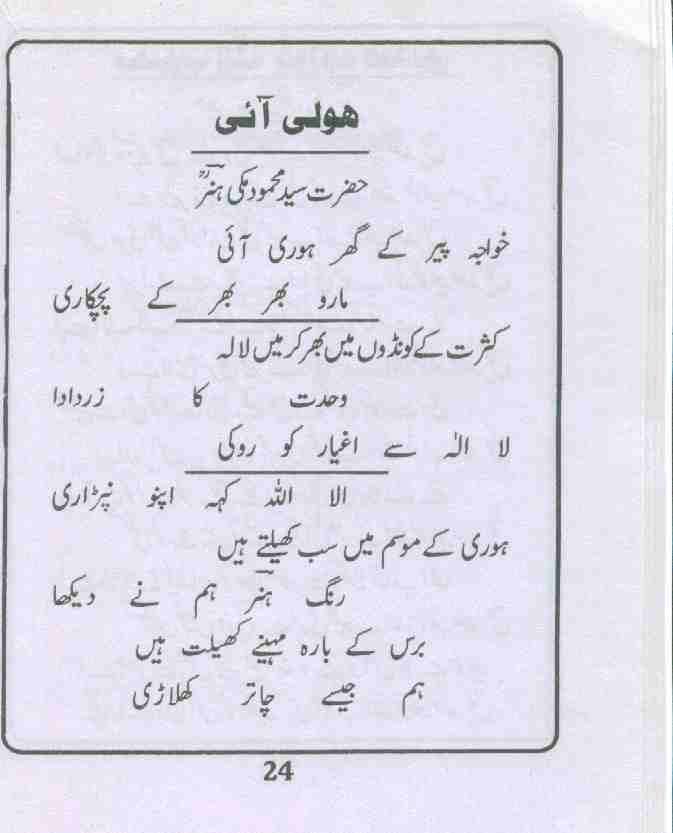 ھولی آئی
حضرت سید محمود مکی ہنرؒ
خواجہ پیر کے گھر ہوری آئی
مارو بھر بھر کے پچکاری
کثرت کے کونڈوں میں بھر کر میں لالہ
وحدت کا زردادا
لا الٰہ سے اغیار کو روکی
الا اللہ کہہ اپنو نپڑاری
ہوری کے موسم میں سب کھیلتے ہیں
رنگ ہنرؔ ہم نے دیکھا
برس کے بارہ مہینے کھیلت ہیں
ہم جیسے چاتر کھلاڑی
24